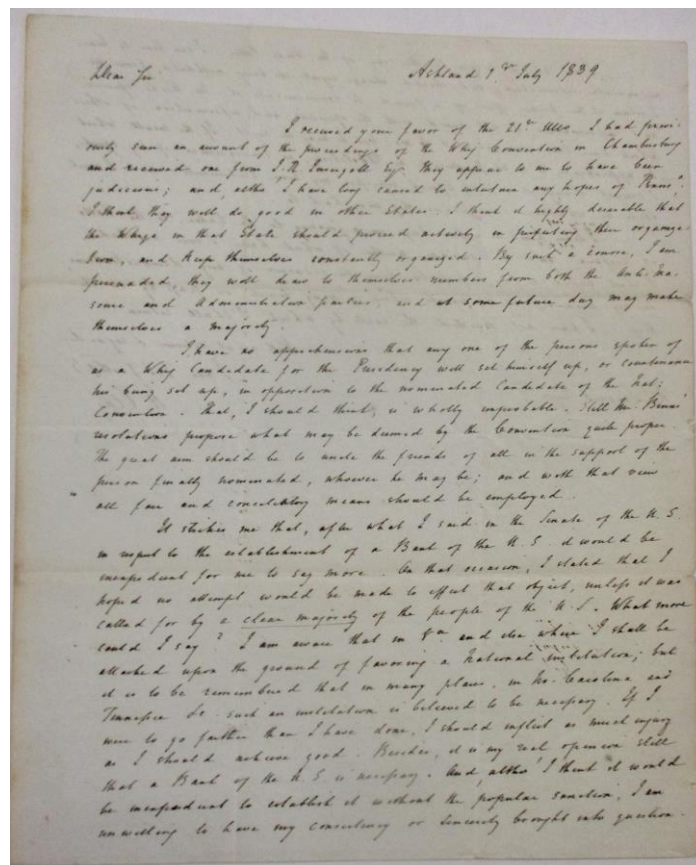 Dear Sir Ashland 1st July 1839
I received your favor of the 21st Ulto. I had previ-
ously seen an account of the proceedings of the Whig Convention in Chambersburg
and received one from J. R. Ingersoll Esq. They appear to me to have been
judicious; and, altho' I have long ceased to entertain any hopes of Penna.
I think they will do good in other States. I think it highly desirable that
the Whigs in that State should proceed actively in perfecting their organiza-
tion, and keep themselves constantly organized. By such a course, I am
persuaded, they will draw to themselves numbers from both the Anti Ma-
sonic and Administration parties, and at some future day may make
themselves a majority.
I have no apprehensions that any one of the persons spoken of
as a Whig Candidate for the Presidency will set himself up, or countenance
his being set up, in opposition to the nominated Candidate of the Nat:
Convention. That, I should think, is wholly improbable. Still Mr.
resolutions propose what may be deemed by the Convention quite proper.
The great aim should be to unite the friends of all in the support of the
person finally nominated, whoever he may be; and with that view
all fair and conciliatory means should be employed.
It strikes me that, after what I said in the Senate of the U. S.
in respect to the establishment of a Bank of the U. S. it would be
inexpedient for me to say more. On that occasion, I stated that I
hoped no attempt would be made to effect that object, unless it was
called for by a clear majority of the people of the U. S. What more
could I say? I am aware that in Va. and else where I shall be
attacked upon the ground of favoring a National institution; but
it is to be remembered that in many places, in No. Carolina and
Tennessee &c. such an institution is believed to be necessary. If I
were to go further than I have done, I should inflict as much injury
as I should achieve good. Besides, it is my real opinion still
that a Bank of the U. S. is necessary. And, altho' I think it would
be inexpedient to establish it without the popular sanction, I am
unwilling to have my consistency or sincerity brought into question.